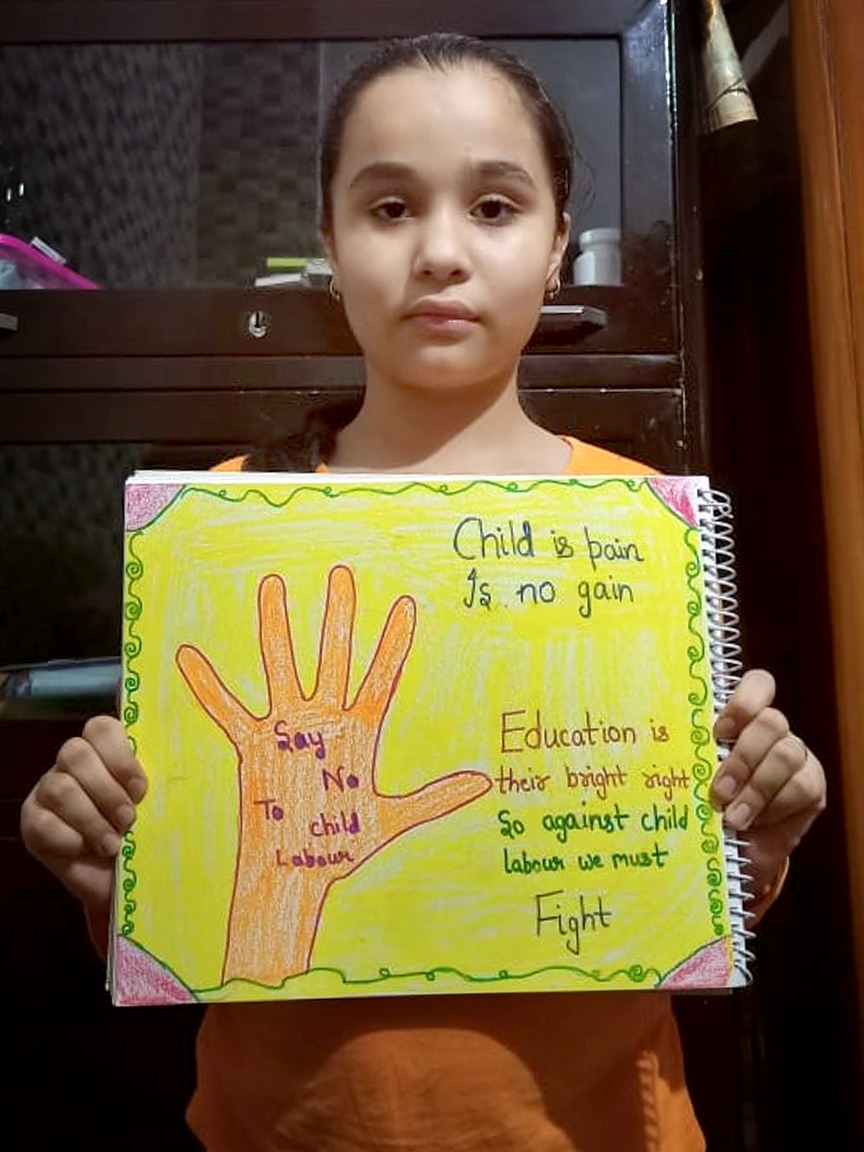 Child is pain
Is no gain
Say
No
To child
Labour
Education is
their bright right
So against child
labour we must
Fight